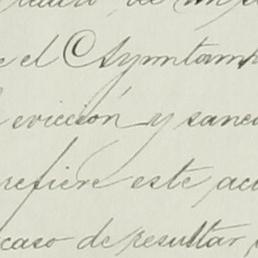 de un
e el Ayuntam
evicción y sane
refiere este ac
caso de resultar